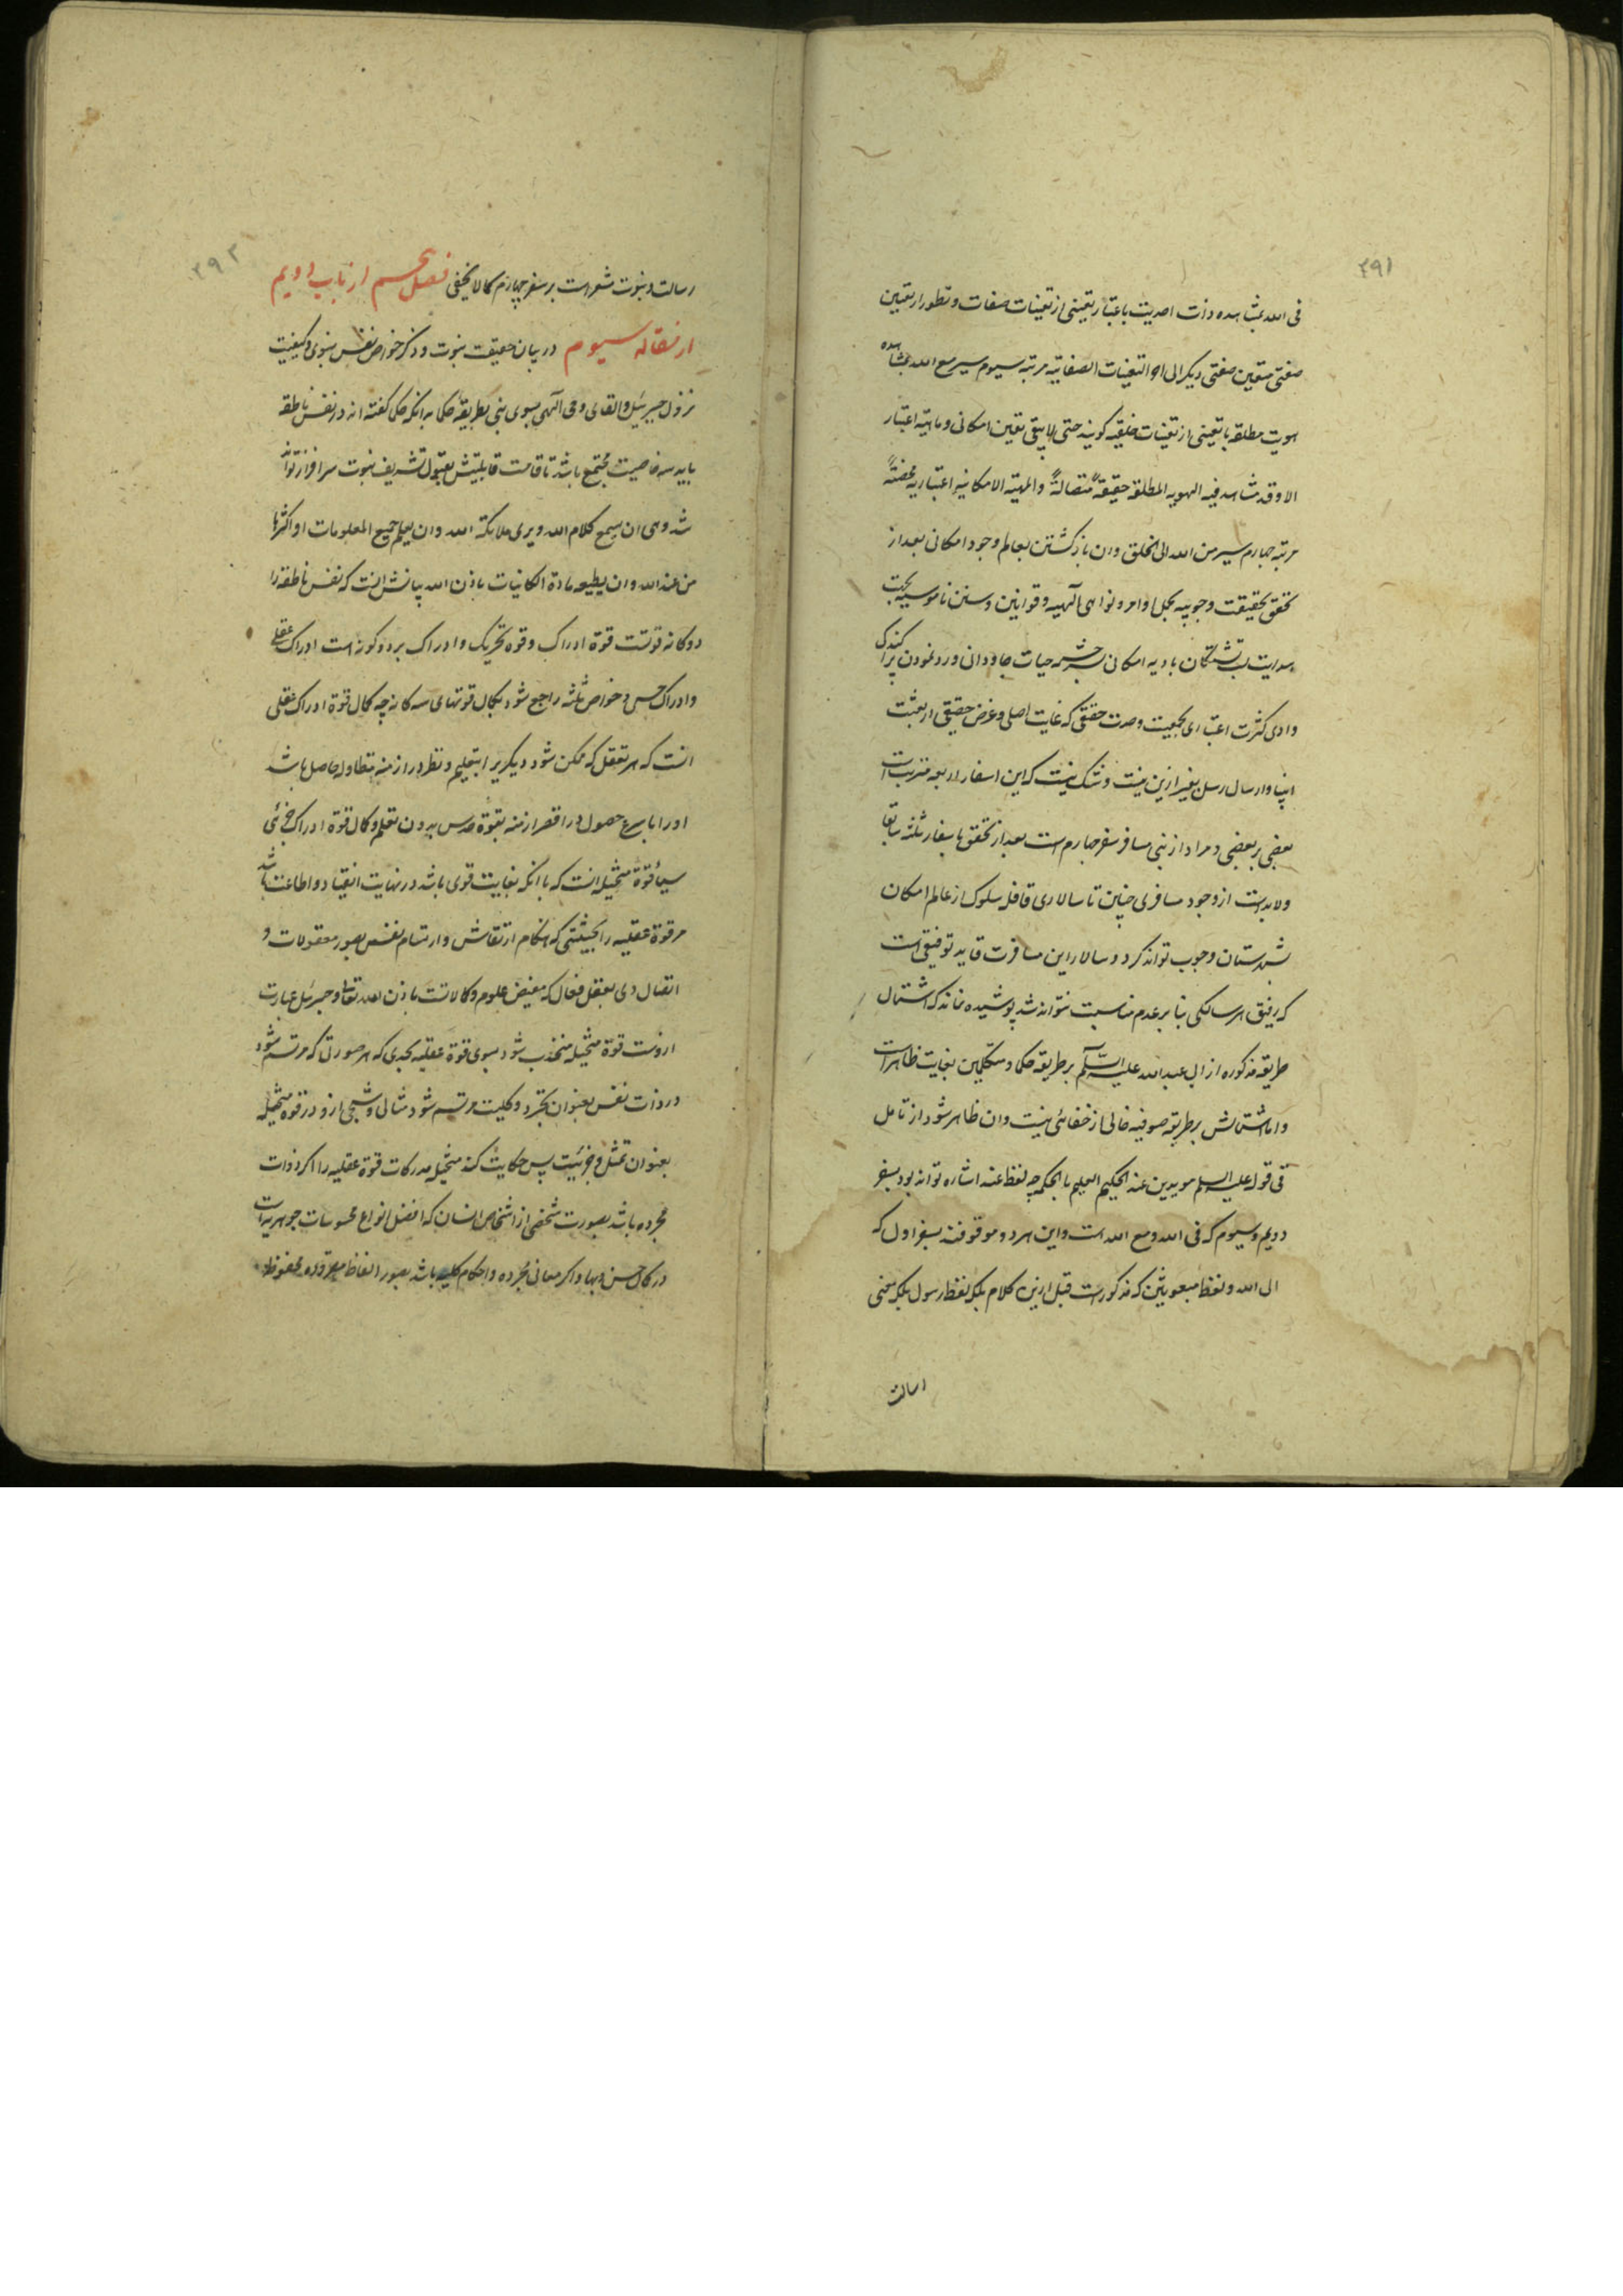 ۳۹۱
فی الله بمشاهده ذات احدیت باعتبار تعینی از تعینات صفات و تطور از تعین
صفتی بتعین صفتی دیگر الی اخر التعینات الصفاتیه مرتبه سیوم سیر مع الله بمشاهده
هویت مطلقه با تعینی از تعینات خلقیه کونیه حتی لا یبقی تعین امکانی و ماهیته اعتبار
الا و قد شاهد فیه الهویه المطلقه حقیقةً متصالةً و المهیته الامکانیه اعتباریه محضتةً
مرتبه چهارم سیر من الله الی الخلق و ان بازگشتن بعالم وجود امکانی بعد از
تحقق بحقیقت وجوبیه بجمل اوامر و نواهی الهیه و قوانین و سنن ناموسیه بجهت
هدایت لب تشنگان بادیه امکانی بسرچشمه حیات جاودانی و رد نمودن پراکندگی
وادی کثرت اعتباری بجمعیت وحدت حقیقی که غایت اصلی و غرض حقیقی از بعثت
انبیا و ارسال رسل بغیر ازین نیست و شک نیست که این اسفار اربعه مترتب است
بعضی بر بعضی و مراد از نبی مسافر سفر چهارم است بعد از تحقق باسفار ثلثه سابقا
و لا بد است از وجود مسافری چنین تا سالاری قافله سلوک از عالم امکان
بشهرستان وجوب تواند کرد و سالار این مسافرت قاید توفیقی است
که رفیق هر سالکی بنا بر عدم مناسبت نتواند شد پوشیده نماند که اشتمال
طریقه مذکوره از ابی عبد الله علیه السّلم بر طریقه حکما و متکلمین بغایت ظاهر است
و اما اشتمالش بر طریقه صوفیه خالی از خفائی نیست و ان ظاهر شود از تامل
فی قوله علیه السلم مویدین عند الحکیم العلیم بالحکمه چه لفظ عند اشاره تواند بود بسفر
دویم و سیوم که فی الله و مع الله است و این هر دو موقوفند بسفر اول که
الی الله و لفظ مبعوثین که مذکور است قبل ازین کلام بلکه لفظ رسول بلکه معنی
رسالت
۳۹۲
رسالت و نبوت مشعر است بر سفر چهارم کما لا یخفی فصل پنجم از باب دویم
از مقاله سیوم در بیان حقیقت نبوت و ذکر خواص نفس نبوی و کیفیت
نزول جبرئیل و القای وحی الهی بسوی نبی بطریقه حکما بدانکه حکما گفته اند در نفس ناطقه
باید سه خاصیت مجتمع باشد تا قامت قابلیتش بقبول تشریف نبوت سرافراز تواند
شد و هی ان یسمع کلام الله و یری ملائکة الله و ان یعلم جمیع المعلومات او اکثرها
من عند الله و ان یطیعه مادة الکائنات باذن الله بیانش انست که نفس ناطقه را
دوگانه قوتست قوة ادراک و قوه تحریک و ادراک بر دو گونه است ادراک عقلی
و ادراک حسی و خواص ثلثه راجع شود بکمال قوتهای سه گانه چه کمال قوة ادراک عقلی
انست که هر تعقل که ممکن شود دیگریرا بتعلیم و نظر در ازمنه متطاوله حاصل باشد
او را باسرع حصول در اقصر ازمنه بقوة حدس بدون تعلم و کمال قوة ادراک جزئی
سیما قوة متخیله انست که با انکه بغایت قوی باشد در نهایت انقیاد و اطاعت باشد
مر قوة عقلیه را بحیثیتی که هنگام ارتقاش و ارتسام نفس بصور معقولات و
اتصال وی بعقل فعال که مفیض علوم و کمالاتست باذن الله تعالی و جبرئیل عبارت
ازوست قوة متخیله منجذب شود بسوی قوة عقلیه بحدی که هر صورتی که مرتسم شود
در ذات نفس بعنوان تجرد و کلیت مرتسم شود مثالی و شبحی ازو در قوه متخیله
بعنوان تمثل و جزئیت پس حکایت کند متخیله مدرکات قوة عقلیه را اگر ذوات
مجرده باشد بصورت شخصی از اشخاص انسان که افضل انواع محسوسات جوهریه است
در کمال حسن و بها و اگر معانی مجرده و احکام کلیه باشد بصور الفاظ مقروّه محفوظه